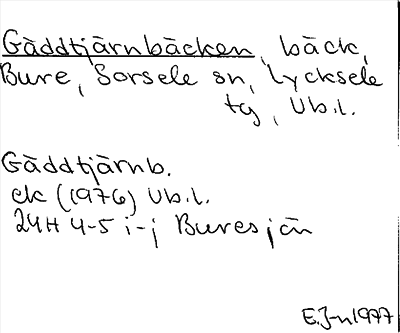 Gäddtjärnbäcken, bäck,
Bure, Sorsele sn, Lycksele
tg, Vb.l.
Gäddtjärnb.
ek (1976) Vb.l.
24H 4-5 i-j Buresjön
E.J-n 1977